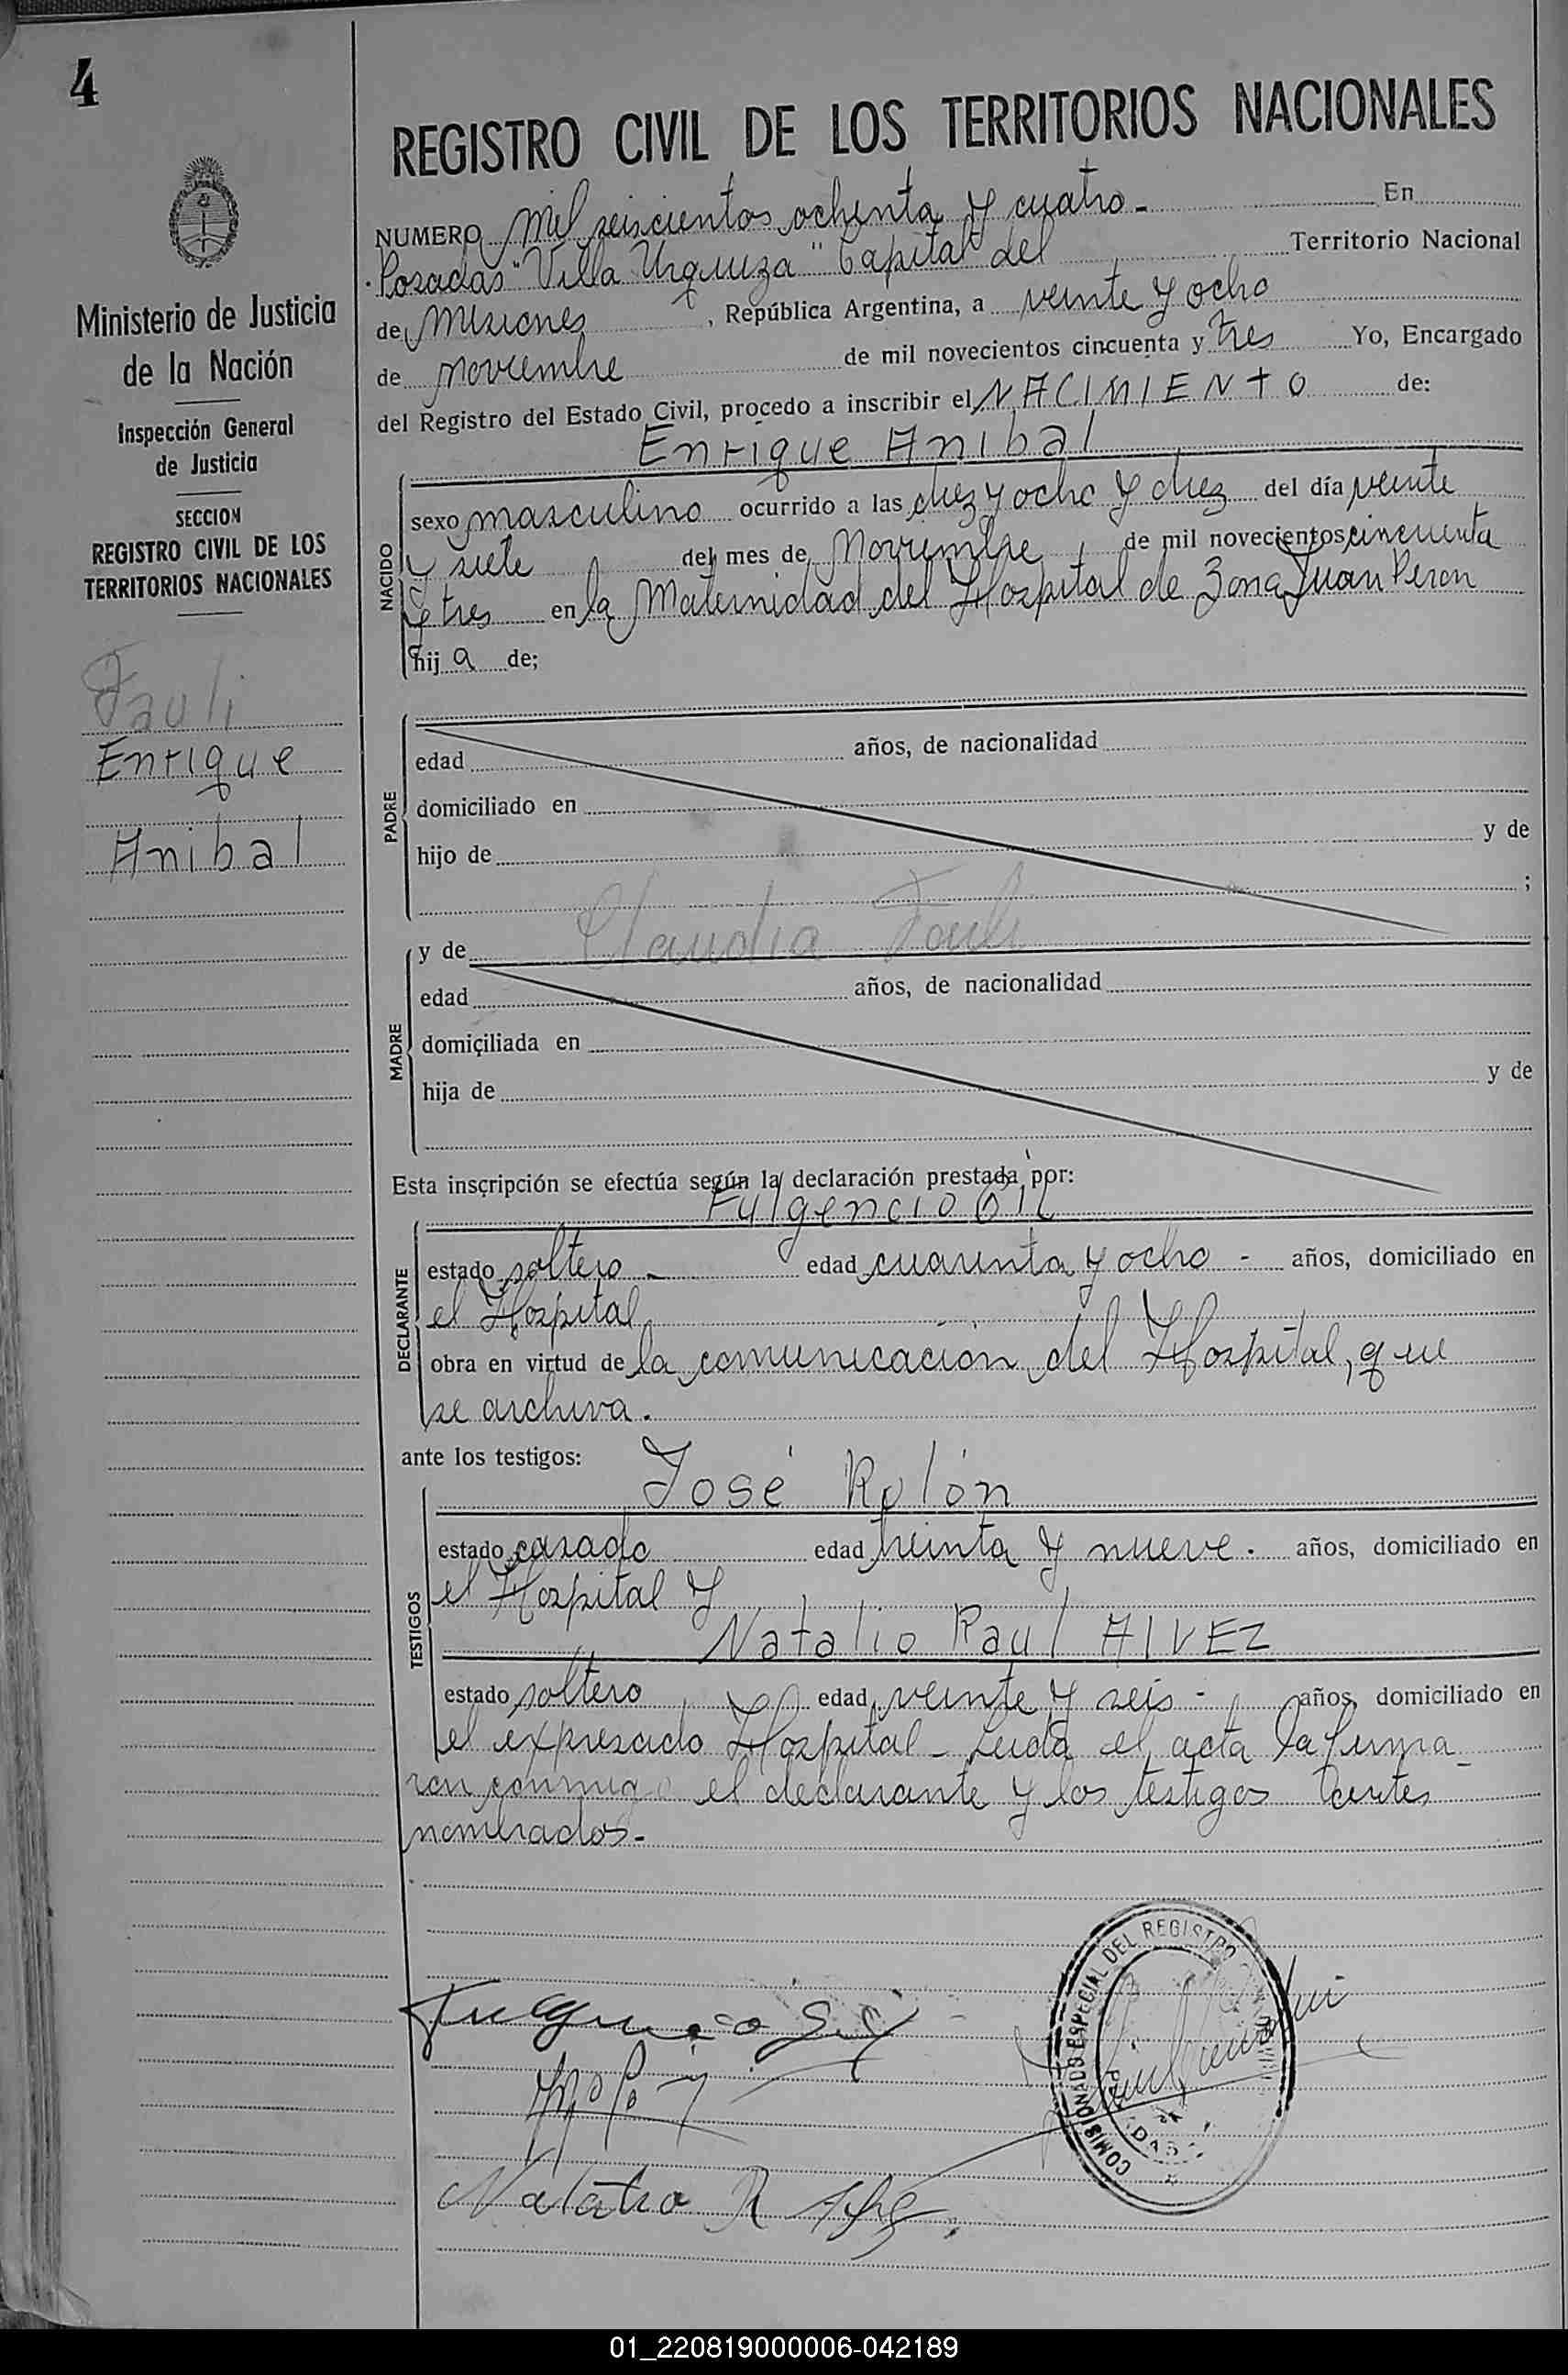 4
REGISTRO CIVIL DE LOS TERRITORIOS NACIONALES
NUMERO Mil seiscientos ochenta y cuatro - En
Posadas "Villa Urquiza" Capital del Territorio Nacional
de Misiones, República Argentina, a veinte y ocho
de noviembre de mil novecientos cincuenta y tres Yo, Encargado
del Registro del Estado Civil, procedo a inscribir el NACIMIENTO de:
Enrique Anibal
NACIDO
sexo masculino ocurrido a las diez y ocho y diez del día veinte
y siete del mes de Noviembre, de mil novecientos cincuenta
y tres en la Maternidad del Hospital de Zona Juan Peron
hij a de;
PADRE
edad años, de nacionalidad
domiciliado en
hijo de y de
;
y de Claudia Fauli
MADRE
edad años, de nacionalidad
domiciliada en
hija de y de
Esta inscripción se efectúa según la declaración prestada por:
Fulgencio Gil
DECLARANTE
estado soltero - edad cuarenta y ocho - años, domiciliado en
el Hospital
obra en virtud de la comunicación del Hospital, que
se archiva.
ante los testigos:
José Rolón
TESTIGOS
estado casado edad treinta y nueve. años, domiciliado en
el Hospital y
Natalio Raul AlVEZ
estado soltero, edad veinte y seis - años, domiciliado en
el expresado Hospital - Leida el acta la firma_
ron conmigo el declarante y los testigos
nombrados -
Fulgencio Gil
Natalio R
COMISIONADO ESPECIAL DEL REGISTRO
Ministerio de Justicia
de la Nación
Inspección General
de Justicia
SECCION
REGISTRO CIVIL DE LOS
TERRITORIOS NACIONALES
Fauli
Enrique
Anibal
01_220819000006-042189